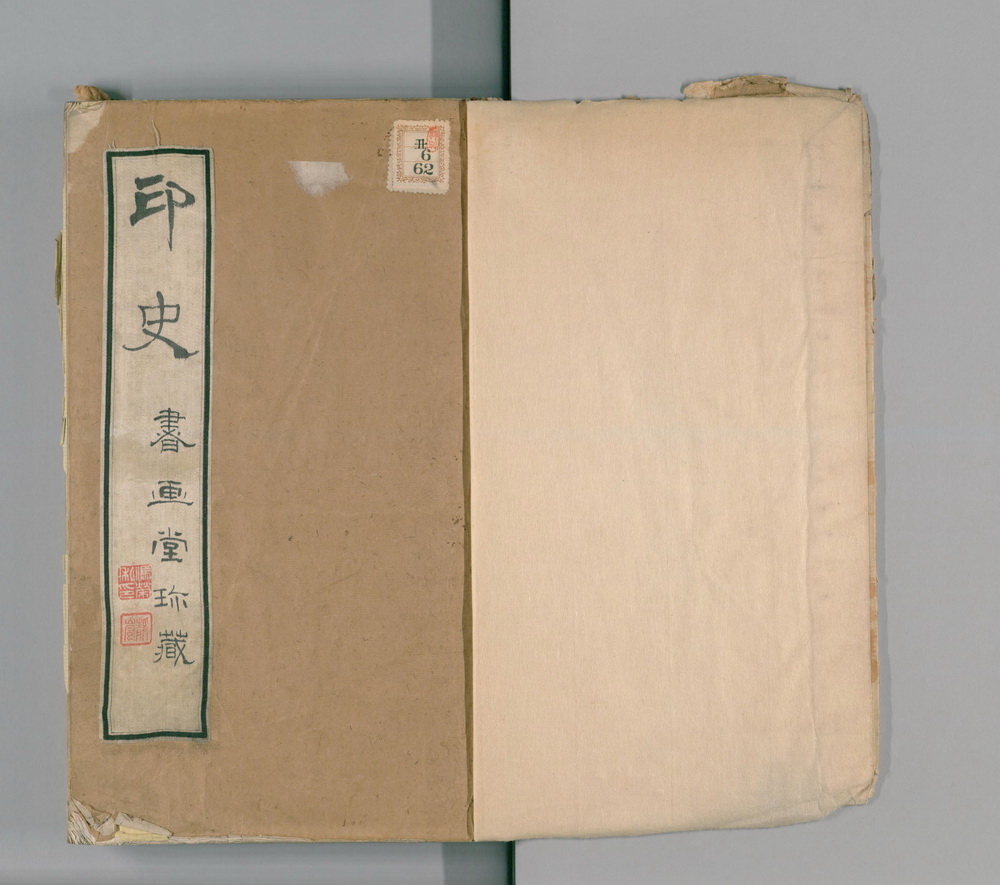 印史
書画堂珎藏
6
62